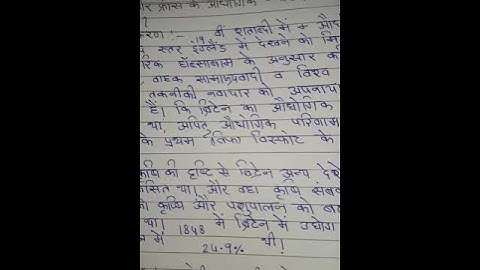 और फ्रांस के औद्योगिक
?
करण :- 19 वीं शताब्दी में औद्यो
स्तर इंग्लैंड में देखने को मि
रिक हॉब्सबाम के अनुसार
वाहक साम्राज्यवादी व विश्व
तकनीकी नवाचार को अपनाया
है। कि ब्रिटेन का औद्योगिक
था, अपितु औद्योगिक परिणाम
के प्रथम विस्फोट के
कृषि की दृष्टि से ब्रिटेन अन्य देशे
सित था। और वहा कृषि संबं
कृषि और पशुपालन को ब
था। 1848 में ब्रिटेन में उद्योग
में 24.9% थी।